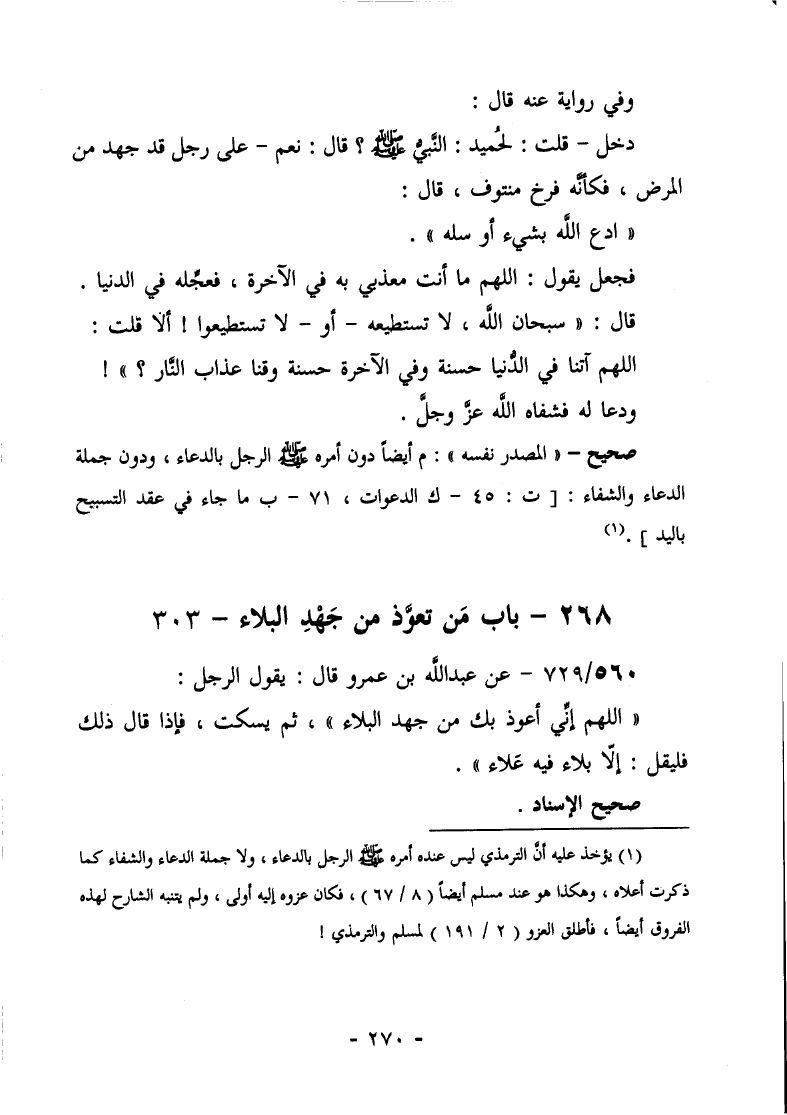 وفي رواية عنه قال :
دخل – قلت : لحُميد : النَّبيُّ ﷺ ؟ قال : نعم – على رجل قد جهد من
المرض ، فكأنَّه فرخ منتوف ، قال :
« ادع اللَّه بشيء أو سله » .
فجعل يقول : اللهم ما أنت معذبي به في الآخرة ، فعجِّله في الدنيا .
قال : « سبحان اللَّه ، لا تستطيعه – أو – لا تستطيعوا ! ألا قلت :
اللهم آتنا في الدُّنيا حسنة وفي الآخرة حسنة وقنا عذاب النَّار ؟ » !
ودعا له فشفاه اللَّه عزَّ وجلَّ .
صحيح – « المصدر نفسه » : م أيضاً دون أمره ﷺ الرجل بالدعاء ، ودون جملة
الدعاء والشفاء : [ ت : ٤٥ – ك الدعوات ، ٧١ – ب ما جاء في عقد التسبيح
باليد ] .(١)
٢٦٨ – باب مَن تعوَّذ من جَهْدِ البلاء – ٣٠٣
٧٢٩/٥٦٠ – عن عبداللَّه بن عمرو قال : يقول الرجل :
« اللهم إنِّي أعوذ بك من جهد البلاء » ، ثم يسكت ، فإذا قال ذلك
فليقل : إلَّا بلاء فيه عَلاء » .
صحيح الإسناد .
(١) يؤخذ عليه أنَّ الترمذي ليس عنده أمره ﷺ الرجل بالدعاء ، ولا جملة الدعاء والشفاء كما
ذكرت أعلاه ، وهكذا هو عند مسلم أيضاً ( ٨ / ٦٧ ) ، فكان عزوه إليه أولى ، ولم يتنبه الشارح لهذه
الفروق أيضاً ، فأطلق العزو ( ٢ / ١٩١ ) لمسلم والترمذي !
- ٢٧٠ -